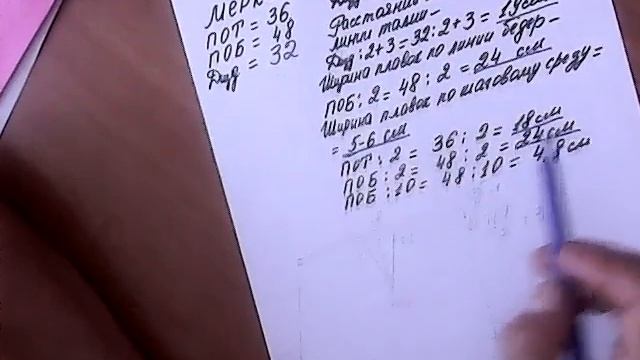 МЕРК
ПОТ = 36
ПОБ = 48
Дцд = 32
Расстояние
линии талии -
Дцд : 2 + 3 = 32 : 2 + 3 = 19 см
Ширина плавок по линии бедер -
ПОБ : 2 = 48 : 2 = 24 см
Ширина плавок по шаговому срезу =
= 5-6 см
ПОТ : 2 = 36 : 2 = 18 см
ПОБ : 2 = 48 : 2 = 24 см
ПОБ : 10 = 48 : 10 = 4,8 см